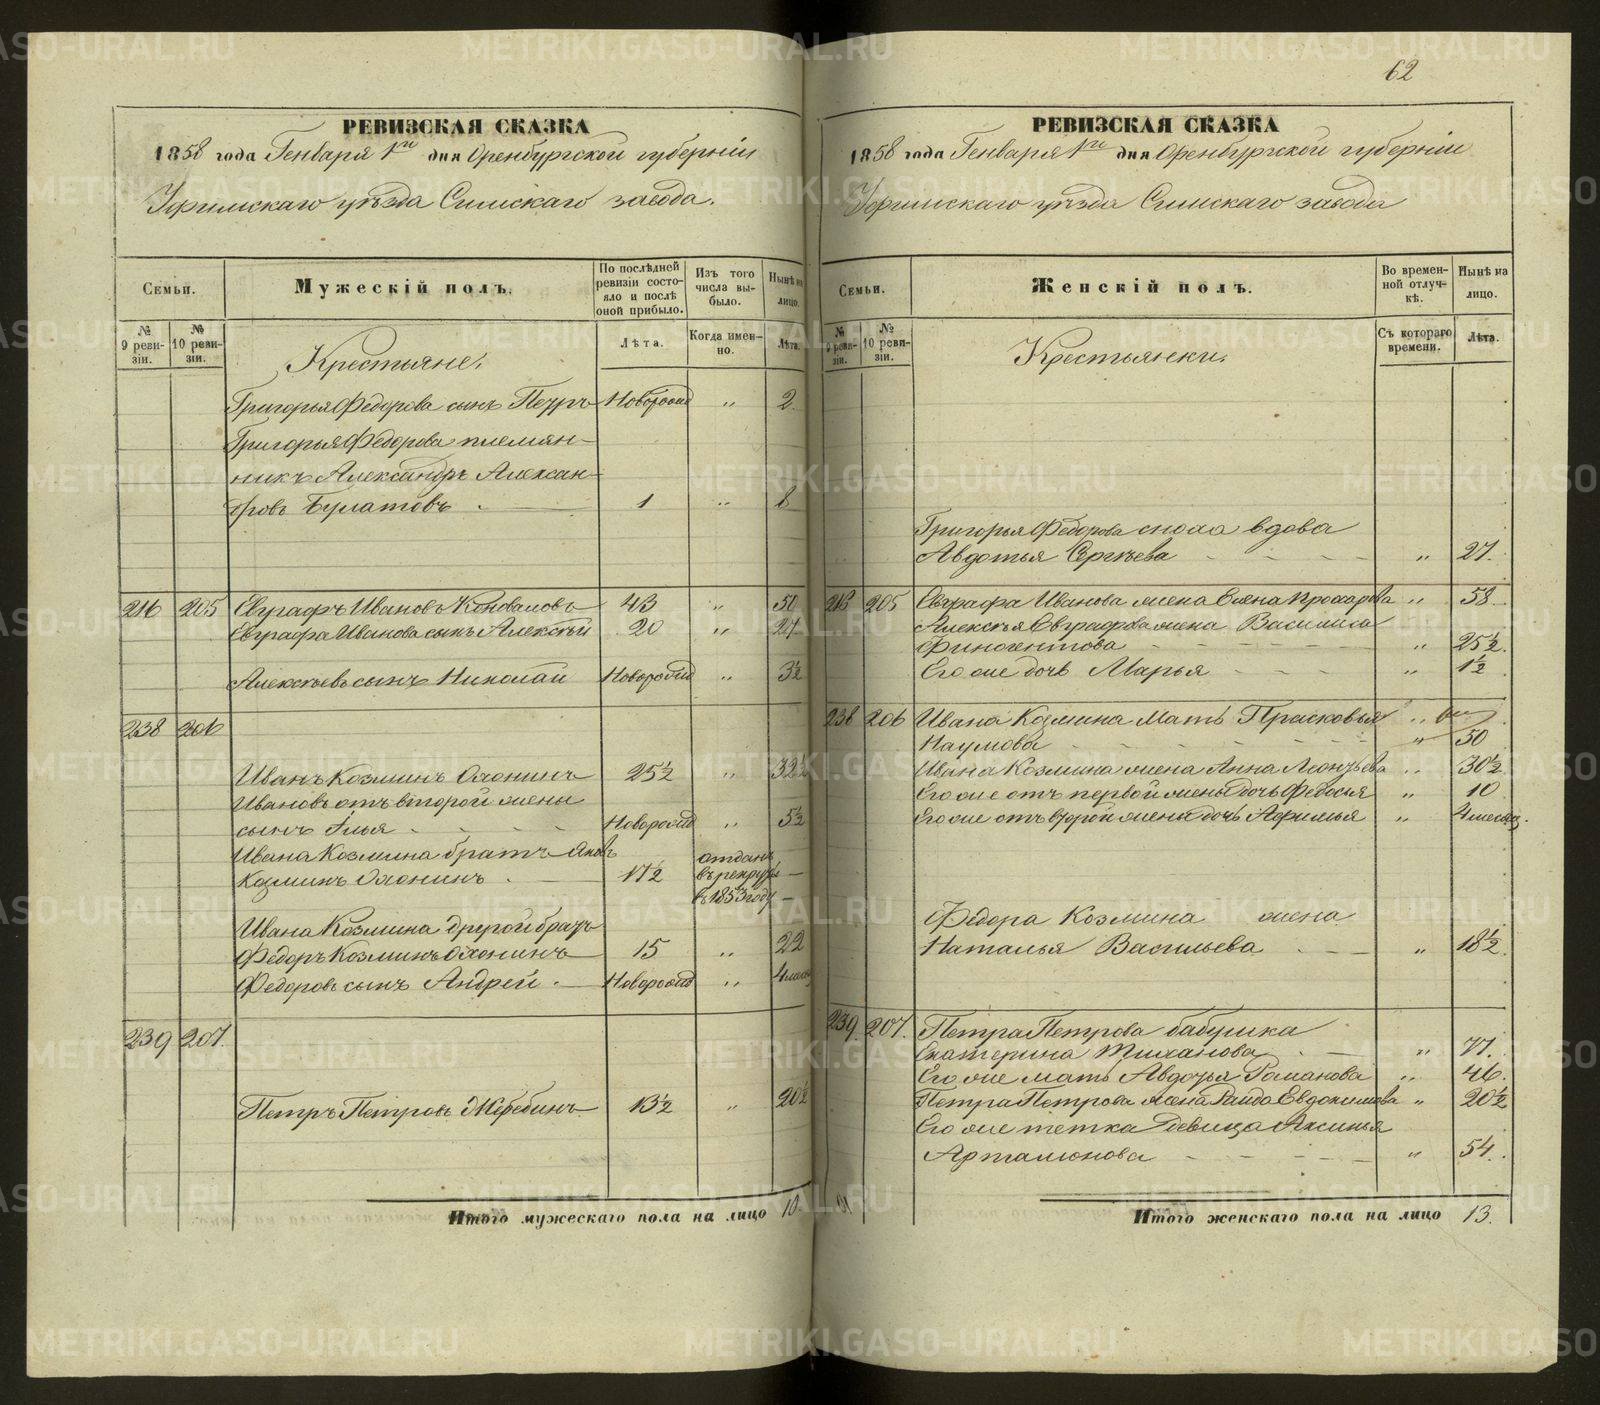 62
РЕВИЗСКАЯ СКАЗКА
1858 года Генваря 1го дня Оренбургской губернiи
Уфимскаго уѣзда Симскаго завода.
Семьи.
№ 9 ревизiи.
№ 10 ревизiи.
Мужескiй полъ.
По послѣдней ревизiи состояло и послѣ оной прибыло.
Лѣта.
Изъ того числа выбыло.
Когда именно.
Нынѣ на лицо.
Лѣта.
Крестьяне.
Григорья Федорова сынъ Петръ Новорожд „ 2
Григорья Федорова племян-
никъ Александръ Алексан-
дровъ Булатовъ 1 „ 8
216 205 Евграфъ Ивановъ Коновъаловъ 43 „ 50
Евграфа Иванова сынъ Алексѣй 20 „ 27
Алексѣевъ сынъ Николай Новорожд „ 3½
238 206
Иванъ Козминъ Охонинъ 25½ „ 32½
Ивановъ отъ второй жены
сынъ Илья Новорожд „ 5½
Ивана Козмина братъ Яковъ
Козминъ Охонинъ 17½ отданъ въ рекруты в 1853 году —
Ивана Козмина другой братъ
Федоръ Козминъ Охонинъ 15 „ 22
Федоровъ сынъ Андрей Новорожд „ 4 мѣсяц
239 207.
Петръ Петровъ Жеребинъ 13½ „ 20½
Итого мужескаго пола на лицо 10
РЕВИЗСКАЯ СКАЗКА
1858 года Генваря 1го дня Оренбургской губернiи
Уфимскаго уѣзда Симскаго завода
Семьи.
№ 9 ревизiи.
№ 10 ревизiи.
Женскiй полъ.
Во временной отлучкѣ.
Съ котораго времени.
Нынѣ на лицо.
Лѣта.
Крестьянки.
Григорья Федорова сноха вдова
Авдотья Сергѣева „ 27.
216 205 Евграфа Иванова жена Елена Прохорова „ 53
Алексѣя Евграфова жена Василиса
Финогентова „ 25½.
Его же дочь Марья „ 1½
238 206 Ивана Козмина Мать Прасковья „
Наумова „ 50
Ивана Козмина жена Анна Леонтьева „ 30½
Его же отъ первой жены дочь Федосья „ 10
Его же отъ второй жены дочь Афимья „ 4 месяц.
Федора Козмина жена
Наталья Васильева „ 18½
239. 207. Петра Петрова бабушка
Екатерина Тиханова „ 77.
Его же мать Авдотья Романова „ 46
Петра Петрова жена Раида Евдокимова „ 20½
Его же тетка Девица Аксинья
Артамонова „ 54.
Итого женскаго пола на лицо 13.
METRIKI.GASO-URAL.RU